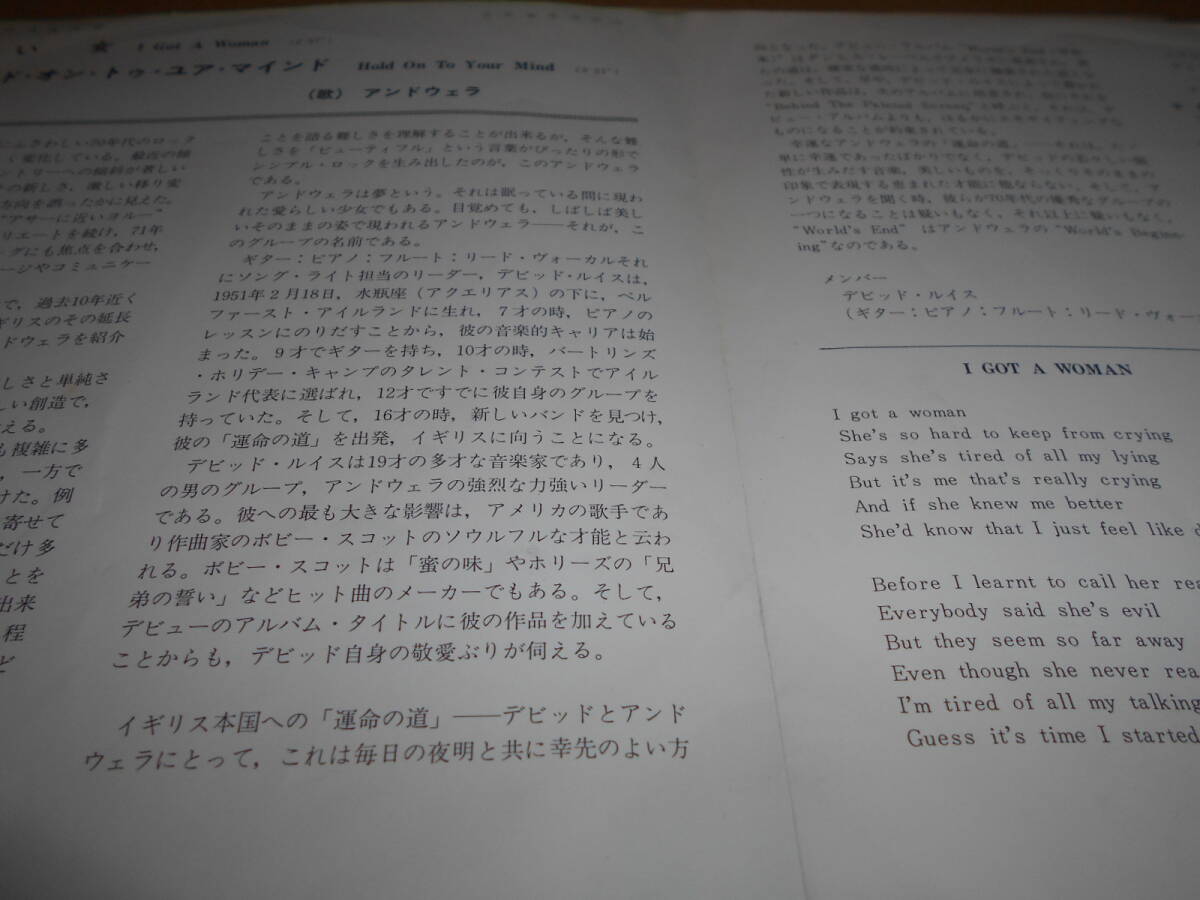 い 女 I Got A Woman
ド・オン・トゥ・ユア・マインド Hold On To Your Mind
（歌） アンドウェラ
にふさわしい70年代のロック
く変化している。最近の傾
ントリーへの傾斜が著しい
の新しさ，激しい移り変
方向を誤ったかに見えた。
リエートを続け，71年
グにも焦点を合わせ，
ージやコミュニケー
で，過去10年近く
ギリスのその延長
ドウェラを紹介
しさと単純さ
しい創造で，
える。
も複雑に多
，一方で
けた。例
寄せて
だけ多
とを
出来
程
ど
ことを語る難しさを理解することが出来るが，そんな難
しさを「ビューティフル」という言葉がぴったりの形で
シンプル・ロックを生み出したのが，このアンドウェラ
である。
アンドウェラは夢という。それは眠っている間に現わ
れた愛らしい少女でもある。目覚めても，しばしば美し
いそのままの姿で現われるアンドウェラ——それが，こ
のグループの名前である。
ギター：ピアノ：フルート：リード・ヴォーカルそれ
にソング・ライト担当のリーダー，デビッド・ルイスは，
1951年２月18日，水瓶座（アクエリアス）の下に，ベル
ファースト・アイルランドに生れ，７才の時，ピアノの
レッスンにのりだすことから，彼の音楽的キャリアは始
まった。９才でギターを持ち，10才の時，バートリンズ
・ホリデー・キャンプのタレント・コンテストでアイル
ランド代表に選ばれ，12才ですでに彼自身のグループを
持っていた。そして，16才の時，新しいバンドを見つけ，
彼の「運命の道」を出発，イギリスに向うことになる。
デビッド・ルイスは19才の多才な音楽家であり，４人
の男のグループ，アンドウェラの強烈な力強いリーダー
である。彼への最も大きな影響は，アメリカの歌手であ
り作曲家のボビー・スコットのソウルフルな才能と云わ
れる。ボビー・スコットは「蜜の味」やホリーズの「兄
弟の誓い」などヒット曲のメーカーでもある。そして，
デビューのアルバム・タイトルに彼の作品を加えている
ことからも，デビッド自身の敬愛ぶりが伺える。
イギリス本国への「運命の道」——デビッドとアンド
ウェラにとって，これは毎日の夜明と共に幸先のよい方
ビュー・アルバムよりも，はるかにエキサイティングな
ものになることが約束されている。
幸運なアンドウェラの「運命の道」——それは，
単に幸運であったばかりでなく，デビッドの若々しい個
性が生みだす音楽，美しいものを，そっくりそのままの
印象で表現する恵まれた才能に他ならない。そして，ア
ンドウェラを聞く時，彼らが70年代の優秀なグループの
一つになることは疑いもなく，それ以上に疑いもなく，
“World's End” はアンドウェラの “World's Beginn-
ing”なのである。
メンバー
デビッド・ルイス
（ギター：ピアノ：フルート：リード・ヴォー
I GOT A WOMAN
I got a woman
She's so hard to keep from crying
Says she's tired of all my lying
But it's me that's really crying
And if she knew me better
She'd know that I just feel like
Before I learnt to call her
Everybody said she's evil
But they seem so far away
Even though she never
I'm tired of all my talking
Guess it's time I started